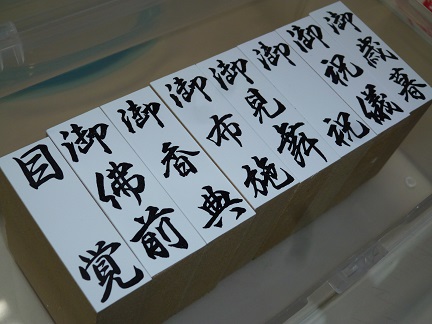 御歳暮
御祝儀
御祝
御見舞
御布施
御香典
御佛前
目覚